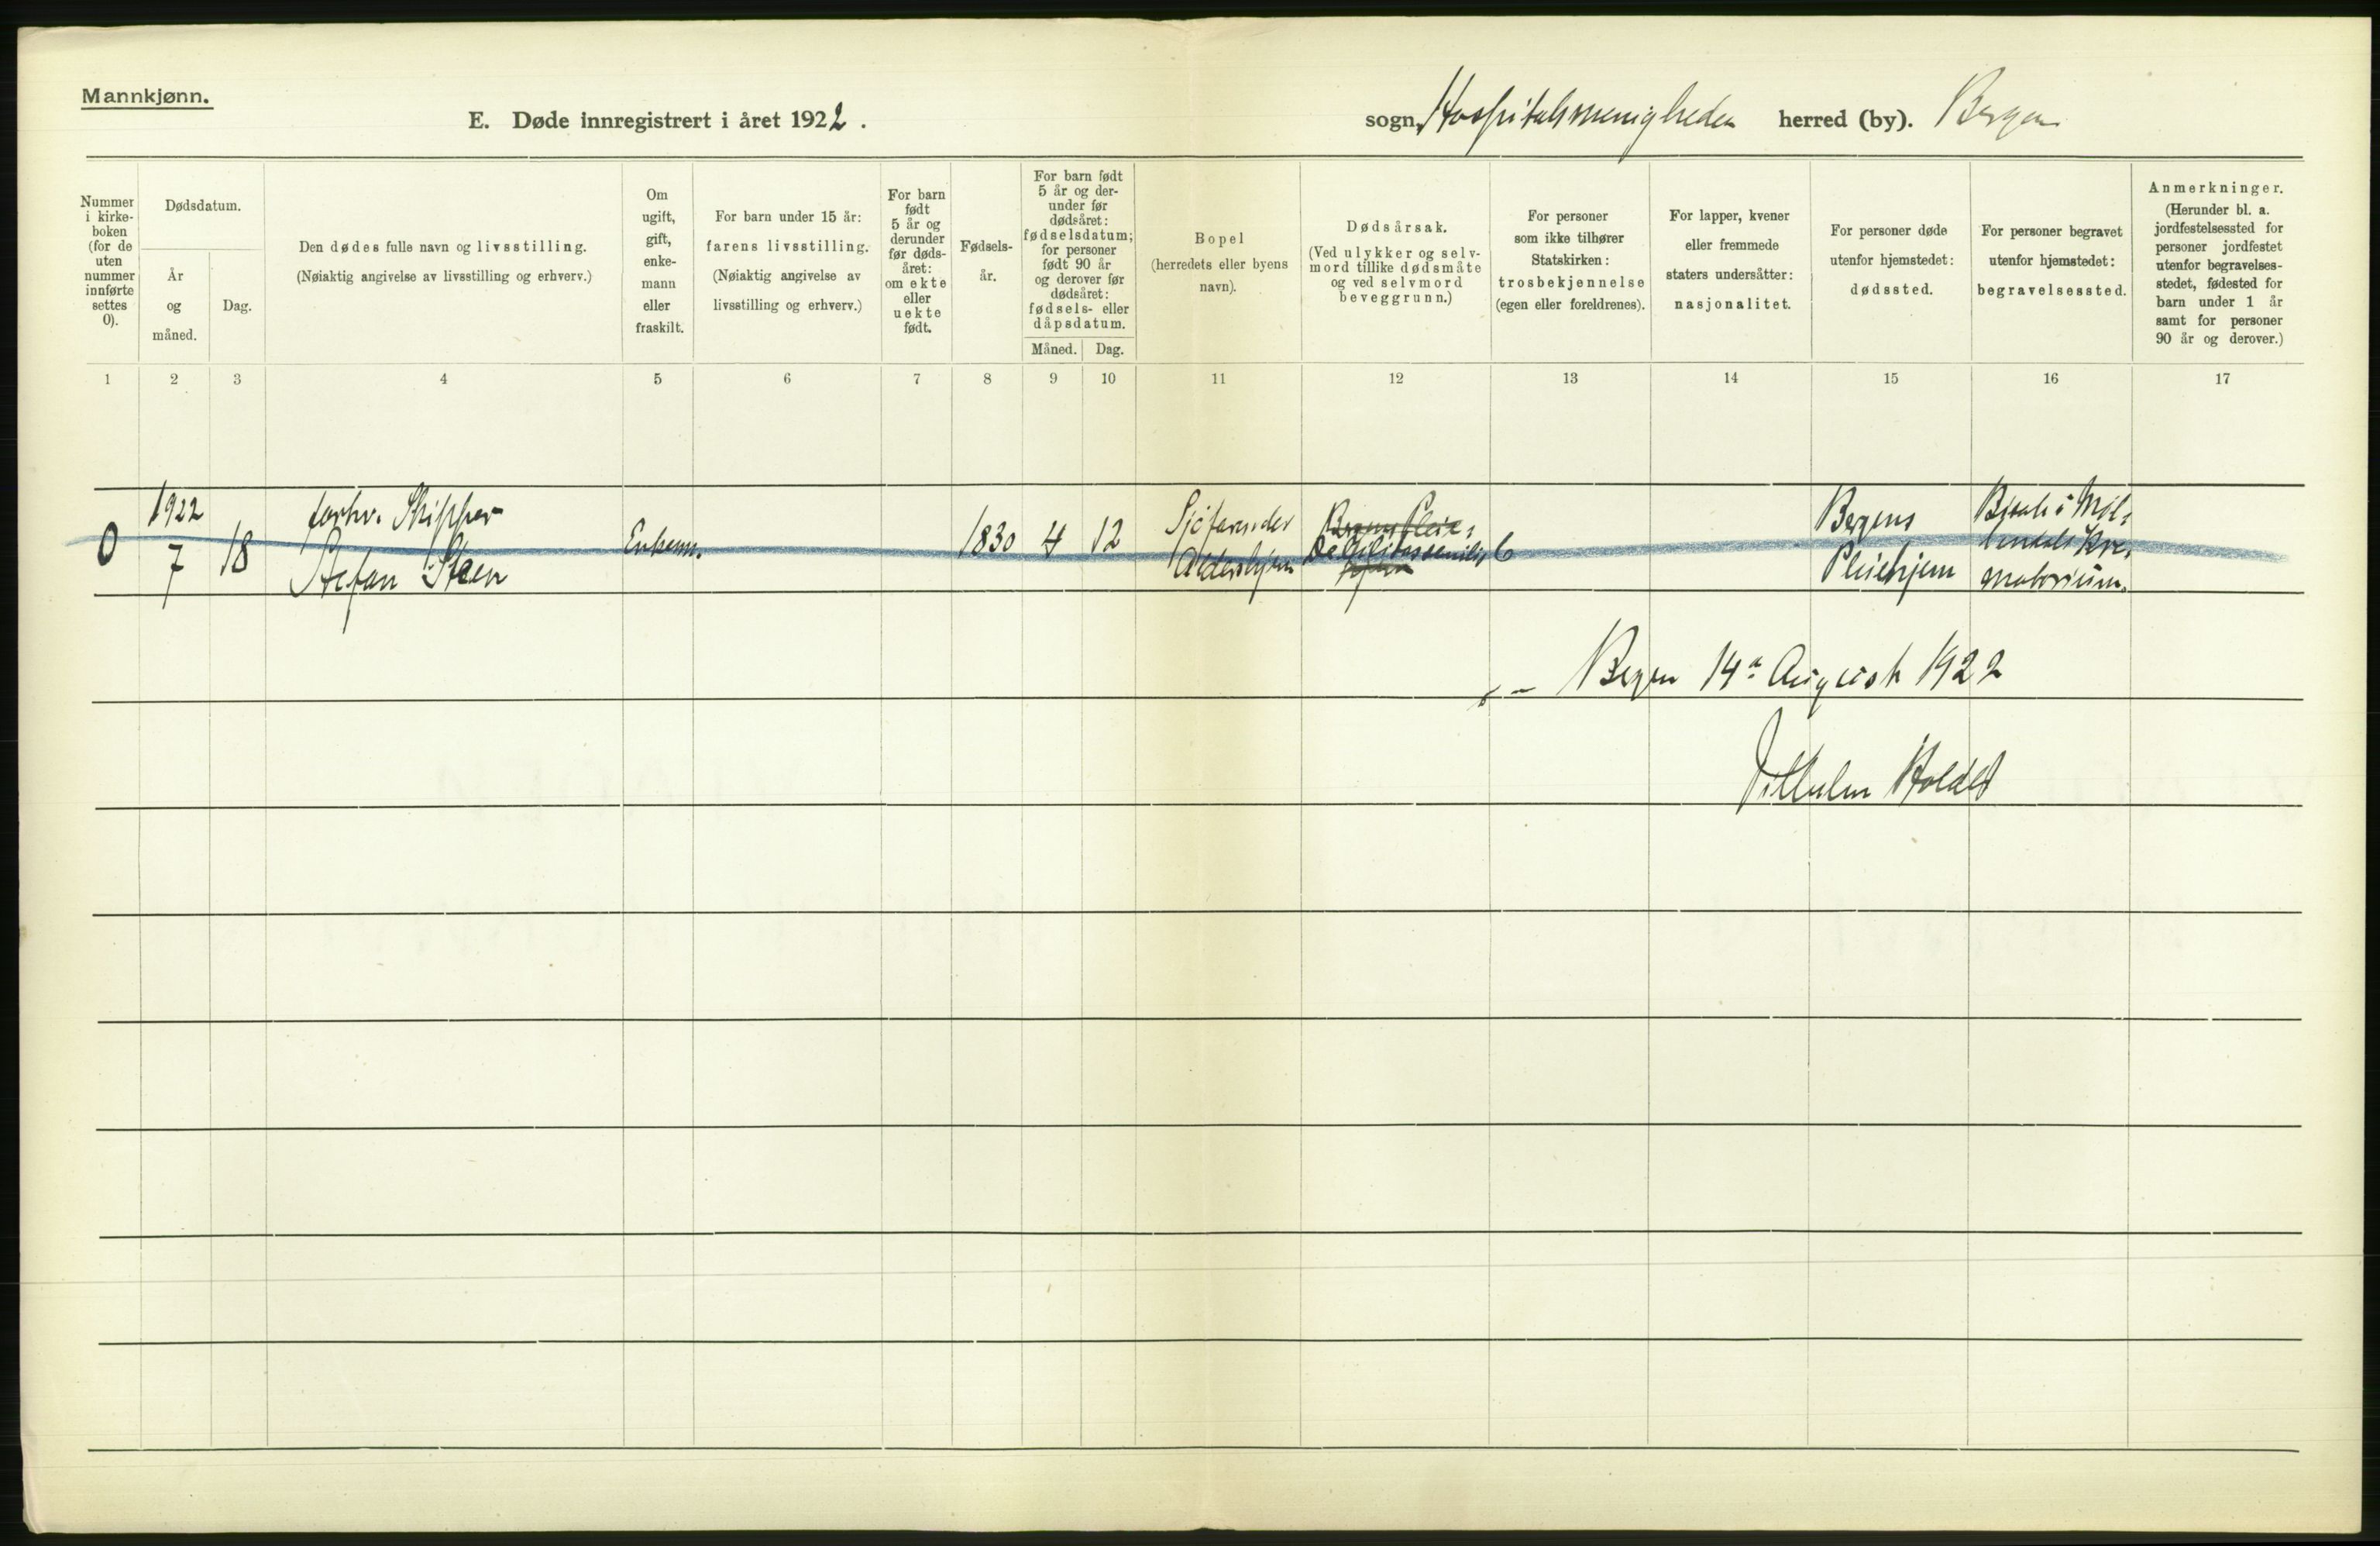 Mannkjønn.
E. Døde innregistrert i året 1922.
sogn, Hospitalsmenigheden herred (by). Bergen
Nummer
i kirke-
boken
(for de
uten
nummer
innførte
settes
0).
Dødsdatum.
År
og
måned.
Dag.
Den dødes fulle navn og livsstilling.
(Nøiaktig angivelse av livsstilling og erhverv.)
Om
ugift,
gift,
enke-
mann
eller
fraskilt.
For barn under 15 år:
farens livsstilling.
(Nøiaktig angivelse av
livsstilling og erhverv.)
For barn
født
5 år og
derunder
før døds-
året:
om ekte
eller
uekte
født.
Fødsels-
år.
For barn født
5 år og der-
under før
dødsåret:
fødselsdatum;
for personer
født 90 år
og derover før
dødsåret:
fødsels- eller
dåpsdatum.
Måned. Dag.
Bopel
(herredets eller byens
navn).
Dødsårsak.
(Ved ulykker og selv-
mord tillike dødsmåte
og ved selvmord
beveggrunn.)
For personer
som ikke tilhører
Statskirken:
trosbekjennelse
(egen eller foreldrenes).
For lapper, kvener
eller fremmede
staters undersåtter:
nasjonalitet.
For personer døde
utenfor hjemstedet:
dødssted.
For personer begravet
utenfor hjemstedet:
begravelsessted.
Anmerkninger.
(Herunder bl. a.
jordfestelsessted for
personer jordfestet
utenfor begravelses-
stedet, fødested for
barn under 1 år
samt for personer
90 år og derover.)
1 2 3 4 5 6 7 8 9 10 11 12 13 14 15 16 17
0
1922
7
18
forhv. Skipper
Stefan Steen
Enkem.
1830
4
12
Sjøfarendes
Aldershjem
Bergens Pleie-
hjem
senilis
6
Bergens
Pleiehjem
Møl-
lendals Kre-
matorium.
Bergen 14de August 1922
Vilhelm Holdt